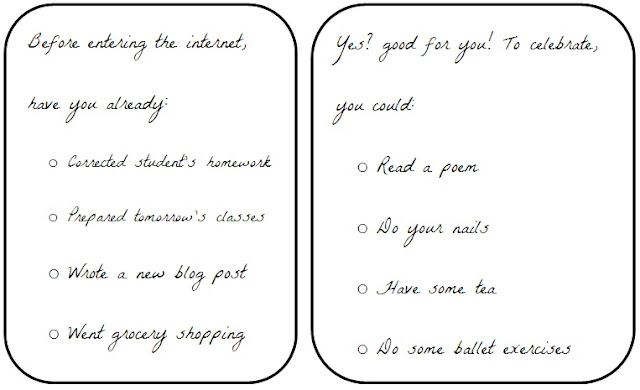 Before entering the internet,
have you already:
Corrected student's homework
Prepared tomorrow's classes
Wrote a new blog post
Went grocery shopping
Yes? good for you! To celebrate,
you could:
Read a poem
Do your nails
Have some tea
Do some ballet exercises